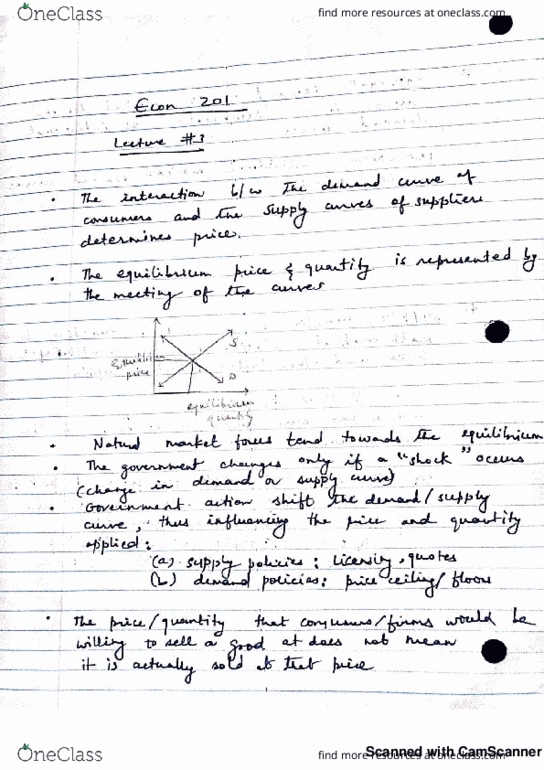 OneClass
find more resources at oneclass.com
Econ 201
Lecture #3
• The interaction b/w the demand curve of
consumers and the supply curves of suppliers
determines price.
• The equilibrium price & quantity is represented by
the meeting of the curves
S
equilibrium
price
D
equilibrium
quantity
• Natural market forces tend towards the equilibrium
• The government changes only if a "shock" occurs
(change in demand or supply curve)
• Government action shift the demand/supply
curve, thus influencing the price and quantity
applied:
(a) supply policies: licensing, quotes
(b) demand policies: price ceiling/floors
• The price/quantity that consumers/firms would be
willing to sell a good at does not mean
it is actually sold at that price
OneClass
find more resources at oneclass.com
Scanned with CamScanner